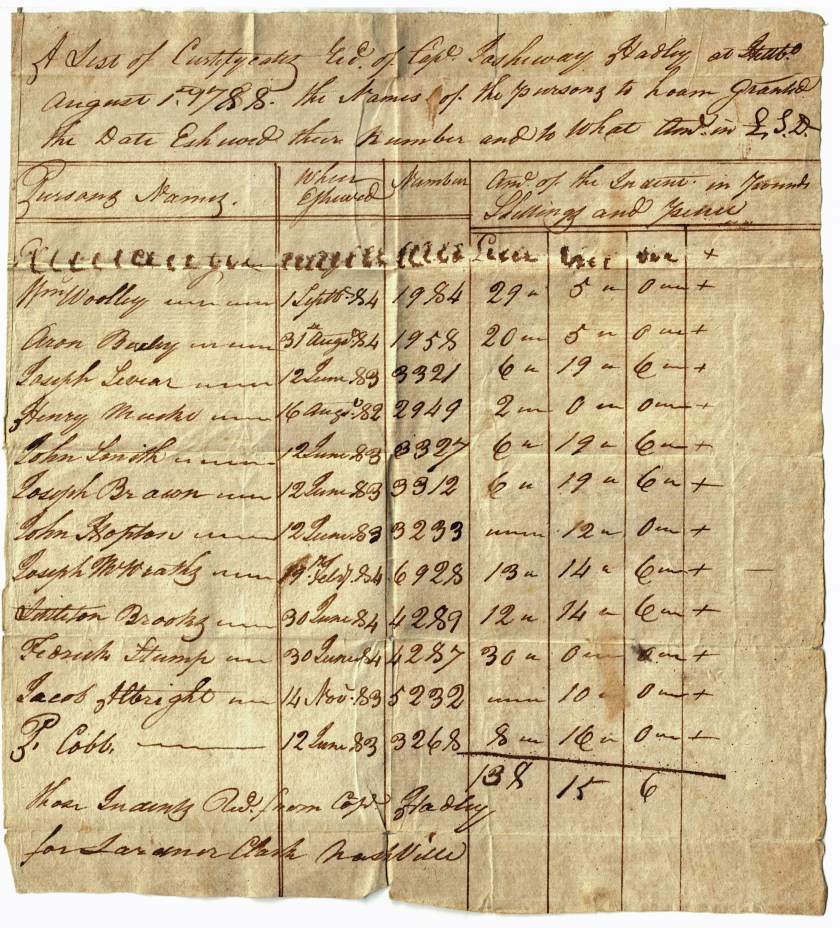 A List of Certifycates Recd. of Capt. Jasheway Hadley at
August 1st. 1788. the Names of the pursons to hoom Granted
the Date Eshuwed their Number and to What Amt. in £.S.D.
Pursons Names. When Eshuwed Number Amt. of the Indent. in Pounds Shillings and Pence
Wm. Woolley 1 Septbr. 84 1984 29 5 0 +
Aron 31st Augt. 84 1958 20 5 0 +
Joseph 12 June 83 3321 6 19 6 +
Henry 16 Augt. 82 2949 2 0 0 +
John Smith 12 June 83 3327 6 19 6 +
Joseph Brawn 12 June 83 3312 6 19 6 +
John Hopton 12 June 83 3233 12 0 +
Joseph McKraths Feby. 84 6928 13 14 6 +
Littleton Brooks 30 June 84 4289 12 14 6 +
Fedrick Stump 30 June 84 4287 30 0 0 +
Jacob Albright 14 Nov. 83 5232 10 0 +
P. Cobb 12 June 83 3268 8 16 0 +
138 15 6
those Indents Recd. from Capt. Hadley
for Lardner Clark Nashville